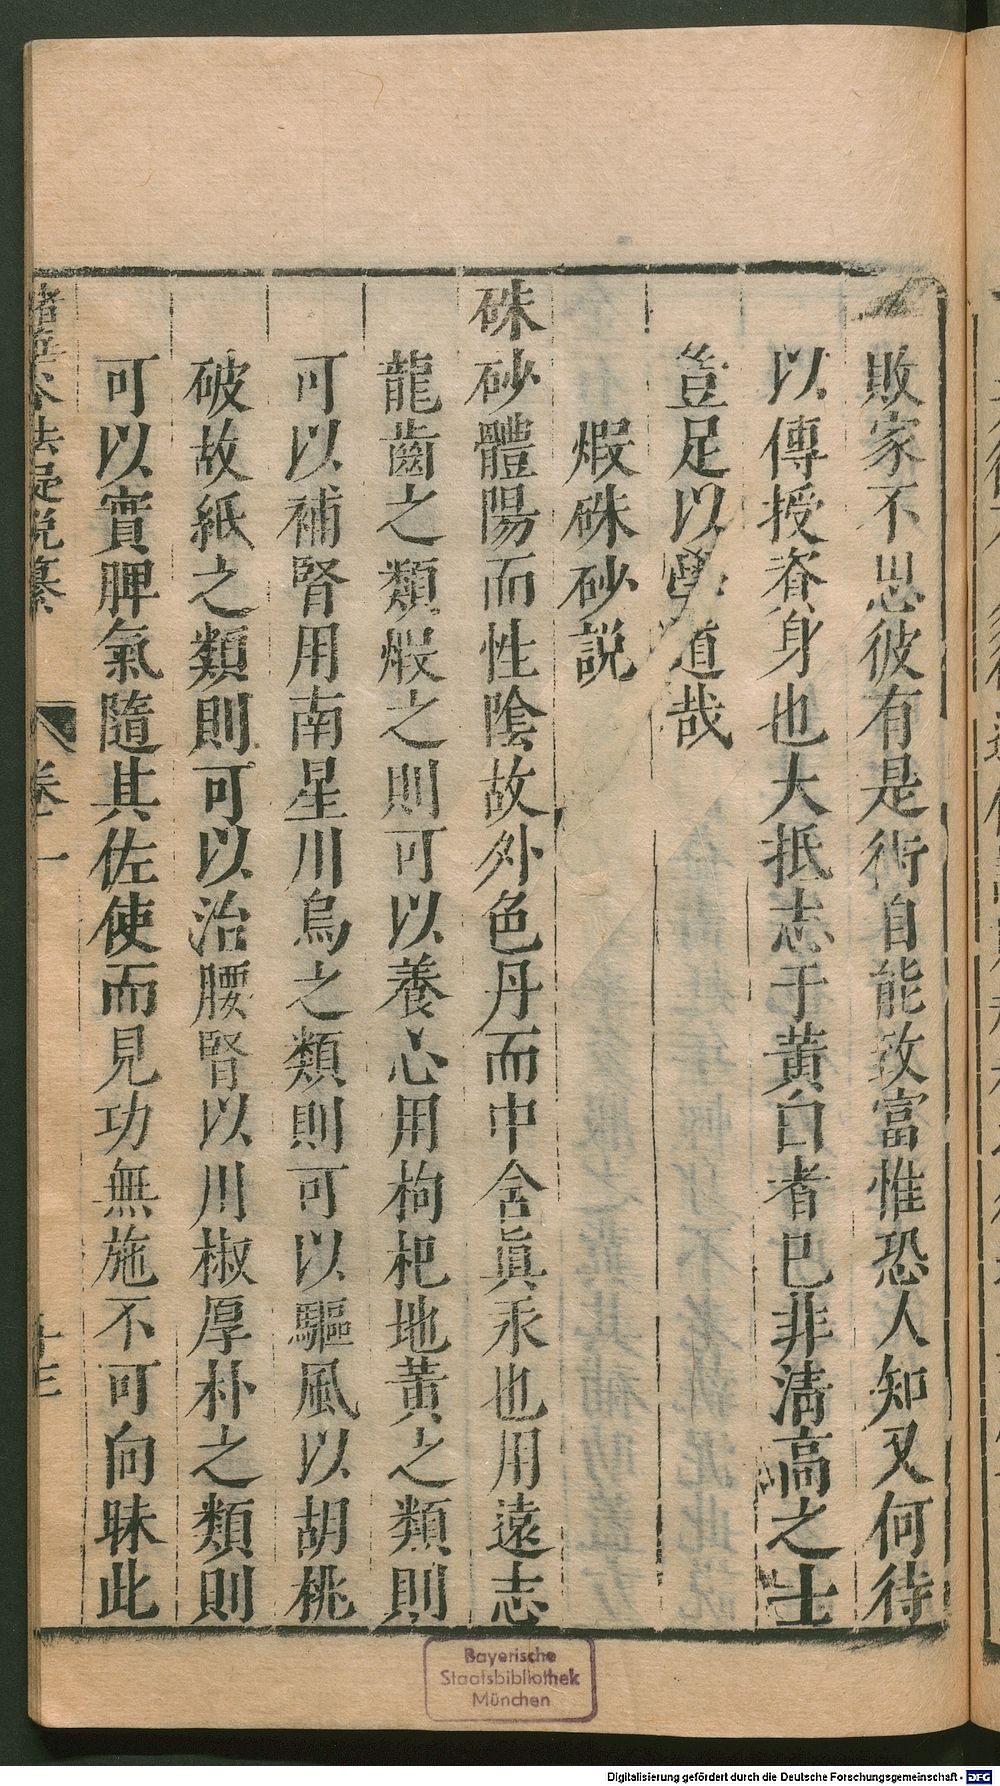 敗家不思彼有是術自能致富惟恐人知又何待
以傳授養身也大抵志于黃白者已非清高之士
豈足以學道哉
煆硃砂説
硃砂體陽而性陰故外色丹而中含眞汞也用遠志
龍齒之類煆之則可以養心用枸杞地黃之類則
可以補腎用南星川烏之類則可以驅風以胡桃
破故紙之類則可以治腰腎以川椒厚朴之類則
可以實脾氣隨其佐使而見功無施不可向昧此
法疑説纂 卷一
Bayerische
Staatsbibliothek
München
Digitalisierung gefördert durch die Deutsche Forschungsgemeinschaft - DFG